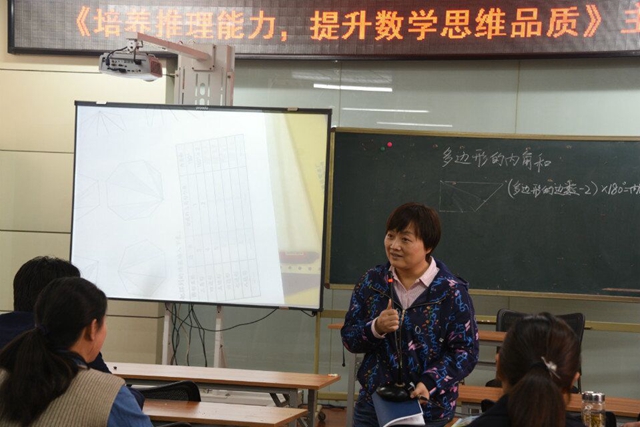 《培养推理能力，提升数学思维品质》主
多边形的内角和
(多边形的边数-2)×180°=内